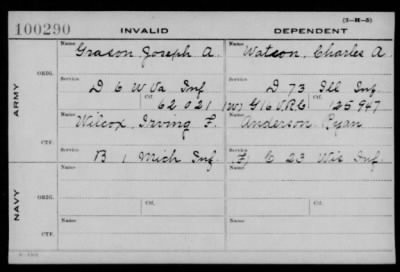 (3-H-5)
100290 INVALID DEPENDENT
Name Name
Grason Joseph A. Watson, Charles A
ORIG. Service Service
D 6 W Va Inf D 73 Ill Inf
ARMY Ctf. 62021 (W) G 16 V.R.C. Ctf. 125947
Name Name
Wilcox, Irving F. Anderson, Ryan
CTF. Service Service
B 1 Mich Inf F, E 23 Wis Inf.
Name Name
ORIG.
Service Service
NAVY Ctf. Ctf.
Name Name
CTF.